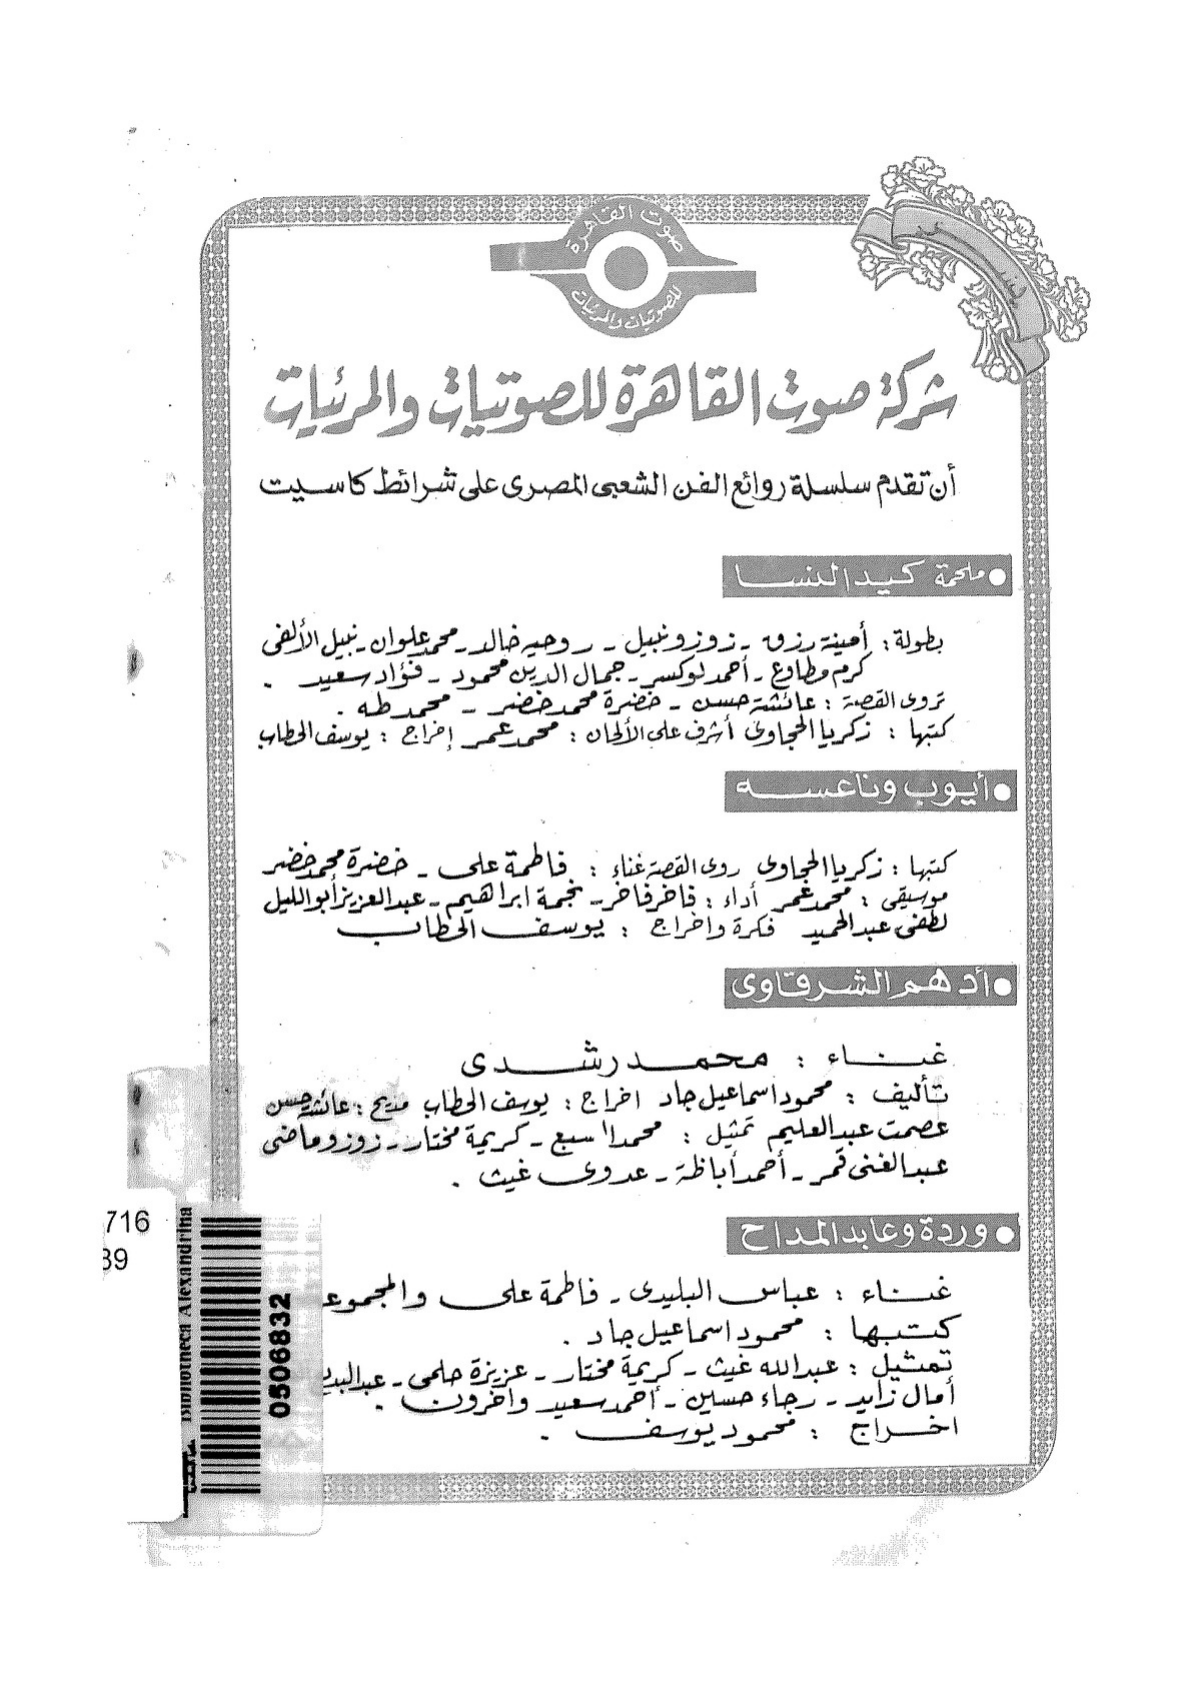 صوت القاهرة
للصوتيات والمرئيات
يسر
شركة صوت القاهرة للصوتيات والمرئيات
أن تقدم سلسلة روائع الفن الشعبى المصرى على شرائط كاسيت
● ملحمة كيد النسا
بطولة : أمينة رزق - زوزو نبيل - روحيه خالد - محمد علوان - نبيل الألفى
كرم مطاوع - أحمد لوكسر - جمال الدين محمود - فؤاد سعيد .
تروى القصة : عائشة حسن - خضرة محمد خضر - محمد طه .
كتبها : زكريا الحجاوى أشرف على الألحان : محمد عمر إخراج : يوسف الحطاب
● أيوب وناعسه
كتبها : زكريا الحجاوى روى القصة غناء : فاطمة على - خضرة محمد خضر
موسيقى : محمد عمر أداء : فاخر فاخر - نجمة ابراهيم - عبد العزيز أبو الليل
لطفى عبد الحميد فكرة واخراج : يوسف الحطاب
● أدهم الشرقاوى
غناء : محمد رشدى
تأليف : محمود اسماعيل جاد اخراج : يوسف الحطاب مديح : عائشة حسن
عصمت عبد العليم تمثيل : محمد السبع - كريمة مختار - زوزو ماضى
عبد الغنى قمر - أحمد أباظة - عدوى غيث .
● وردة وعابد المداح
غناء : عباس البليدى - فاطمة على والمجموعـ
كتبها : محمود اسماعيل جاد .
تمثيل : عبد الله غيث - كريمة مختار - عزيزة حلمى - عبد البديـ
أمال زايد - رجاء حسين - أحمد سعيد وآخرون .
اخراج : محمود يوسف .
716
39
Bibliotheca Alexandrina
0506832